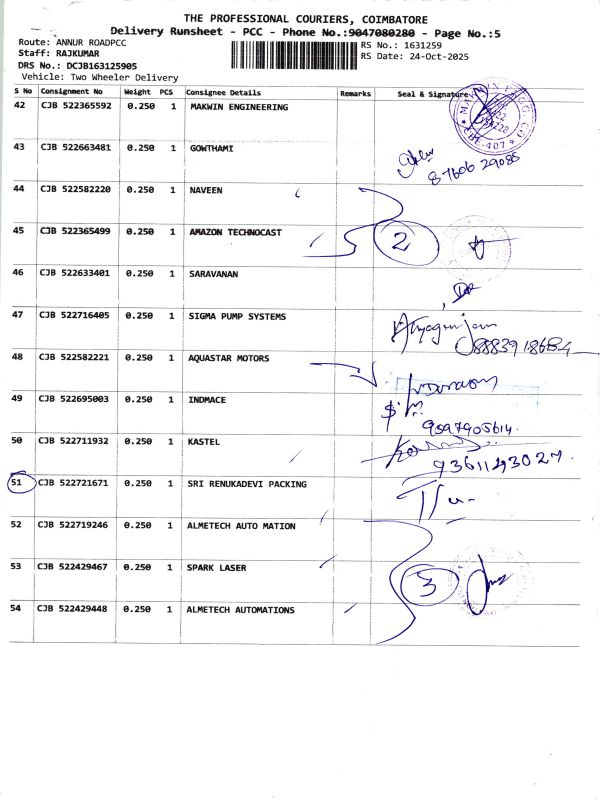 THE PROFESSIONAL COURIERS, COIMBATORE
Delivery Runsheet - PCC - Phone No.:9047080280 - Page No.:5
Route: ANNUR ROADPCC
RS No.: 1631259
Staff: RAJKUMAR
RS Date: 24-Oct-2025
DRS No.: DCJB163125905
Vehicle: Two Wheeler Delivery
S No Consignment No Weight PCS Consignee Details Remarks Seal & Signature
42 CJB 522365592 0.250 1 MAKWIN ENGINEERING
43 CJB 522663481 0.250 1 GOWTHAMI
87606 29085
44 CJB 522582220 0.250 1 NAVEEN
45 CJB 522365499 0.250 1 AMAZON TECHNOCAST 2
46 CJB 522633401 0.250 1 SARAVANAN
47 CJB 522716405 0.250 1 SIGMA PUMP SYSTEMS
48 CJB 522582221 0.250 1 AQUASTAR MOTORS
49 CJB 522695003 0.250 1 INDMACE
9597905614
50 CJB 522711932 0.250 1 KASTEL
9361193027
51 CJB 522721671 0.250 1 SRI RENUKADEVI PACKING
52 CJB 522719246 0.250 1 ALMETECH AUTO MATION
53 CJB 522429467 0.250 1 SPARK LASER 3
54 CJB 522429448 0.250 1 ALMETECH AUTOMATIONS